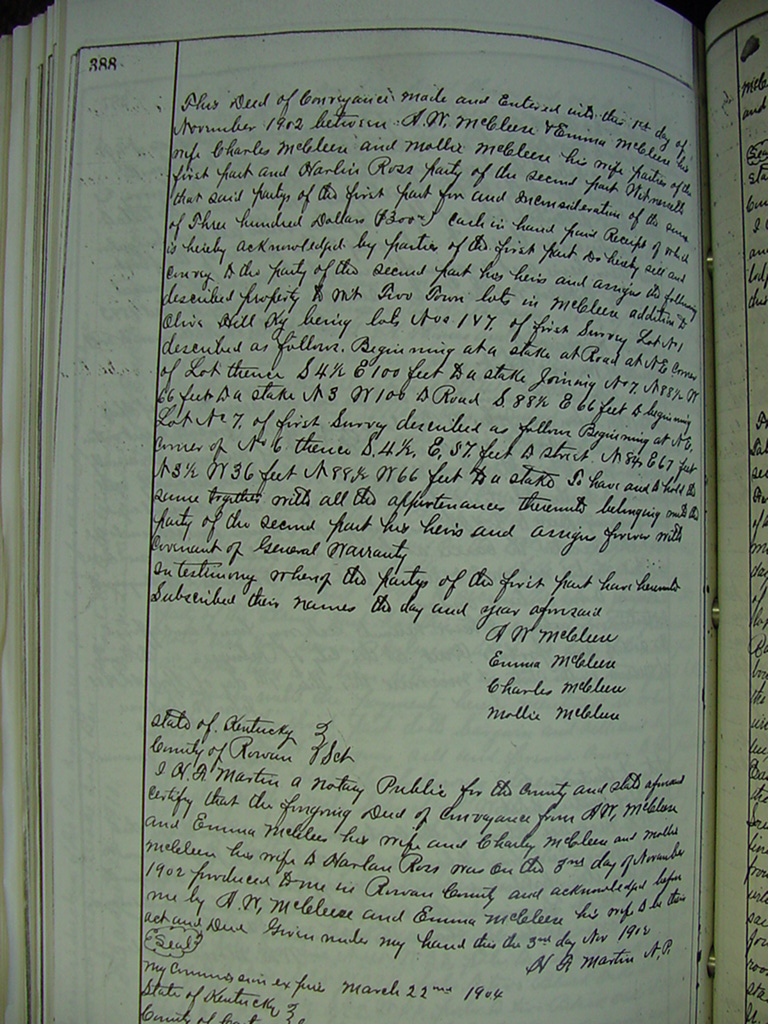 388
This Deed of Conveyance made and Entered into this 1st day of
November 1902 between A. W. McCleese & Emma McCleese his
wife Charles McCleese and Mollie McCleese his wife parties of the
first part and Harlin Ross party of the second part Witnesseth
that said partys of the first part for and inconsideration of the sum
of Three hundred Dollars ($300) cash in hand paid Receipt of which
is hereby acknowledged by parties of the first part do hereby sell and
convey to the party of the second part his heirs and assigns the following
described property to wit Two Town lots in McCleese addition to
Olive Hill Ky being lots Nos 1 & 7. of first Survey Lot No 1
described as follows. Beginning at a stake at Road at N.E. Corner
of Lot thence S 4½ E 100 feet to a stake Joining No 7. N 88½ W
66 feet to a stake N 3 W 100 to Road S. 88½ E 66 feet to beginning
Lot No 7. of first Survey described as follows Beginning at N.E.
Corner of No 6. thence S. 4½, E, 37 feet to street N 84 E 67 feet
N 3½ W 36 feet N 88½ W 66 feet to a stake To have and to hold the
same together with all the appurtenances thereunto belonging unto the
party of the second part his heirs and assigns forever with
Covenant of General Warranty
In testimony whereof the partys of the first part have hereunto
Subscribed their names the day and year aforesaid
A W McCleese
Emma McCleese
Charles McCleese
Mollie McCleese
State of Kentucky }
County of Rowan } Sct
I H. R. Martin a Notary Public for the County and state aforesaid
certify that the foregoing Deed of Conveyance from A. W, McCleese
and Emma McCleese his wife and Charley McCleese and Mollie
McCleese his wife to Harlan Ross was on the 3rd day of November
1902 produced to me in Rowan County and acknowledged before
me by A. W, McCleese and Emma McCleese his wife to be their
act and Deed Given under my hand this the 3rd day Nov 1902
(Seal) H R Martin N.P.
My Commission expire March 22nd 1904
State of Kentucky }
County of